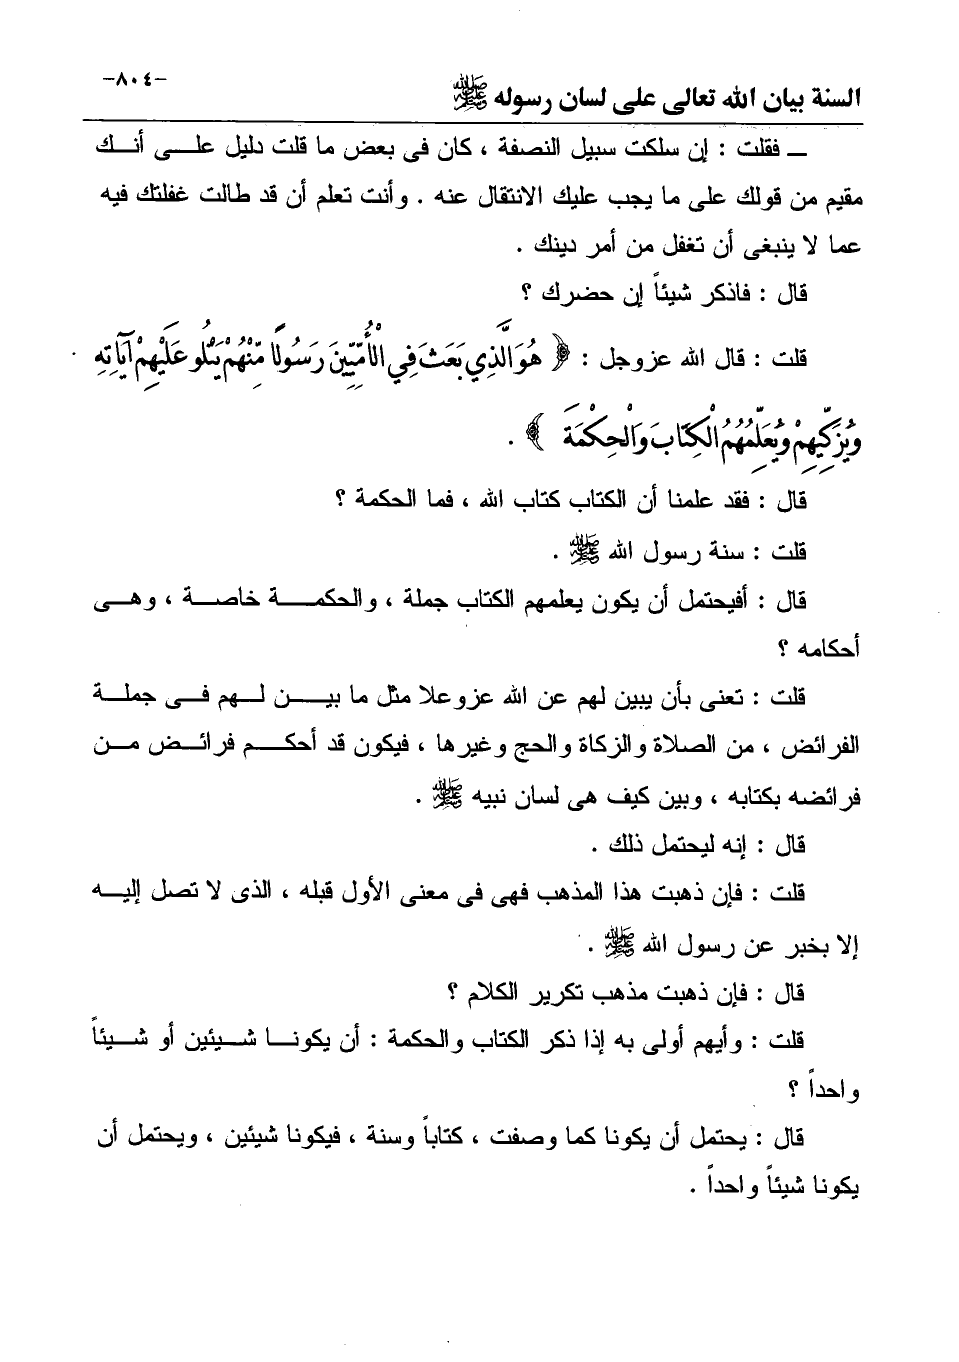 السنة بيان الله تعالى على لسان رسوله ﷺ
-٨٠٤-
ــ فقلت : إن سلكت سبيل النصفة ، كان فى بعض ما قلت دليل علــى أنــك
مقيم من قولك على ما يجب عليك الانتقال عنه . وأنت تعلم أن قد طالت غفلتك فيه
عما لا ينبغى أن تغفل من أمر دينك .
قال : فاذكر شيئاً إن حضرك ؟
قلت : قال الله عزوجل : ﴿ هُوَ الَّذِي بَعَثَ فِي الْأُمِّيِّينَ رَسُولًا مِّنْهُمْ يَتْلُو عَلَيْهِمْ آيَاتِهِ
وَيُزَكِّيهِمْ وَيُعَلِّمُهُمُ الْكِتَابَ وَالْحِكْمَةَ ﴾ .
قال : فقد علمنا أن الكتاب كتاب الله ، فما الحكمة ؟
قلت : سنة رسول الله ﷺ .
قال : أفيحتمل أن يكون يعلمهم الكتاب جملة ، والحكمــــة خاصــة ، وهــى
أحكامه ؟
قلت : تعنى بأن يبين لهم عن الله عزوعلا مثل ما بيــــن لــهم فــى جملــة
الفرائض ، من الصلاة والزكاة والحج وغيرها ، فيكون قد أحكــم فرائــض مــن
فرائضه بكتابه ، وبين كيف هى لسان نبيه ﷺ .
قال : إنه ليحتمل ذلك .
قلت : فإن ذهبت هذا المذهب فهى فى معنى الأول قبله ، الذى لا تصل إليــه
إلا بخبر عن رسول الله ﷺ .
قال : فإن ذهبت مذهب تكرير الكلام ؟
قلت : وأيهم أولى به إذا ذكر الكتاب والحكمة : أن يكونــا شــيئين أو شــيئاً
واحداً ؟
قال : يحتمل أن يكونا كما وصفت ، كتاباً وسنة ، فيكونا شيئين ، ويحتمل أن
يكونا شيئاً واحداً .